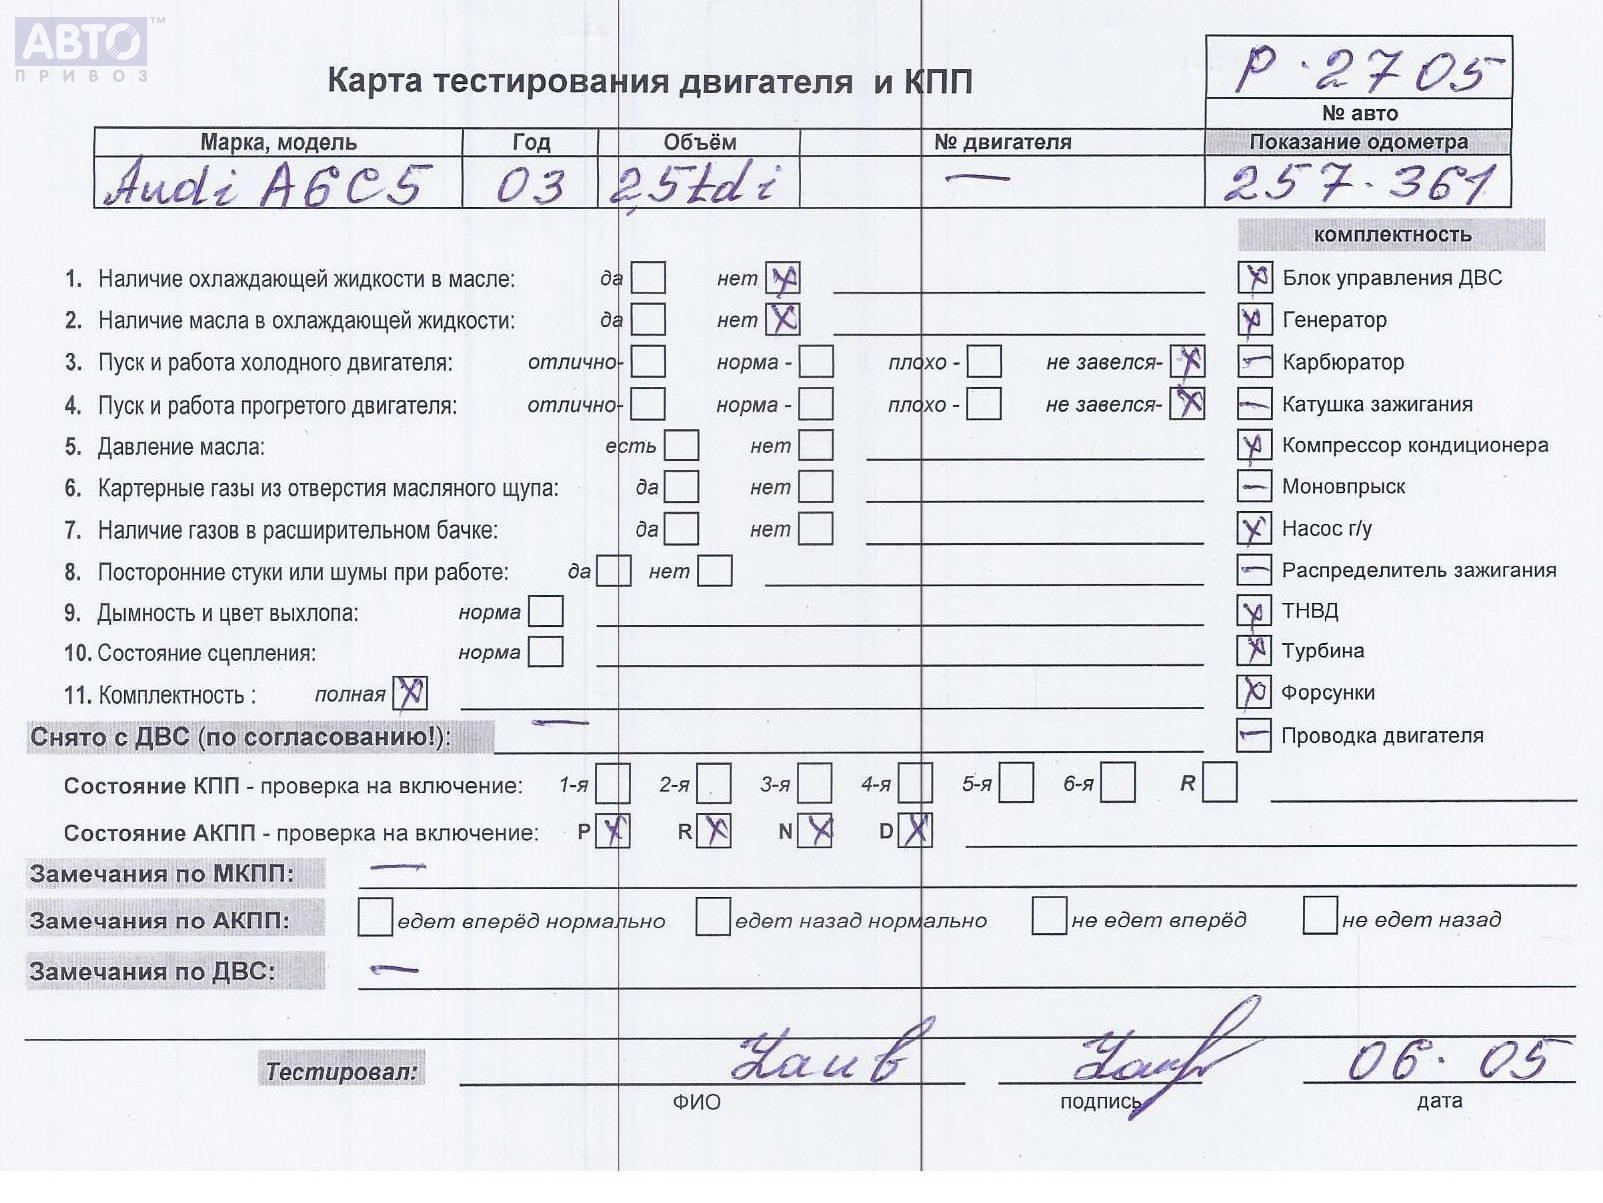 АВТО™
ПРИВОЗ
Карта тестирования двигателя и КПП
Р·2705
№ авто
Марка, модель Год Объём № двигателя Показание одометра
Audi A6C5 03 2,5tdi — 257·361
комплектность
1. Наличие охлаждающей жидкости в масле: да нет X
X Блок управления ДВС
2. Наличие масла в охлаждающей жидкости: да нет X
X Генератор
3. Пуск и работа холодного двигателя: отлично- норма - плохо - не завелся- X
— Карбюратор
4. Пуск и работа прогретого двигателя: отлично- норма - плохо - не завелся- X
— Катушка зажигания
5. Давление масла: есть нет
X Компрессор кондиционера
6. Картерные газы из отверстия масляного щупа: да нет
— Моновпрыск
7. Наличие газов в расширительном бачке: да нет
X Насос г/у
8. Посторонние стуки или шумы при работе: да нет
— Распределитель зажигания
9. Дымность и цвет выхлопа: норма
X ТНВД
10. Состояние сцепления: норма
X Турбина
11. Комплектность : полная X
X Форсунки
Снято с ДВС (по согласованию!): —
— Проводка двигателя
Состояние КПП - проверка на включение: 1-я 2-я 3-я 4-я 5-я 6-я R
Состояние АКПП - проверка на включение: P X R X N X D X
Замечания по МКПП: —
Замечания по АКПП: едет вперёд нормально едет назад нормально не едет вперёд не едет назад
Замечания по ДВС: —
Тестировал: 06·05
ФИО подпись дата